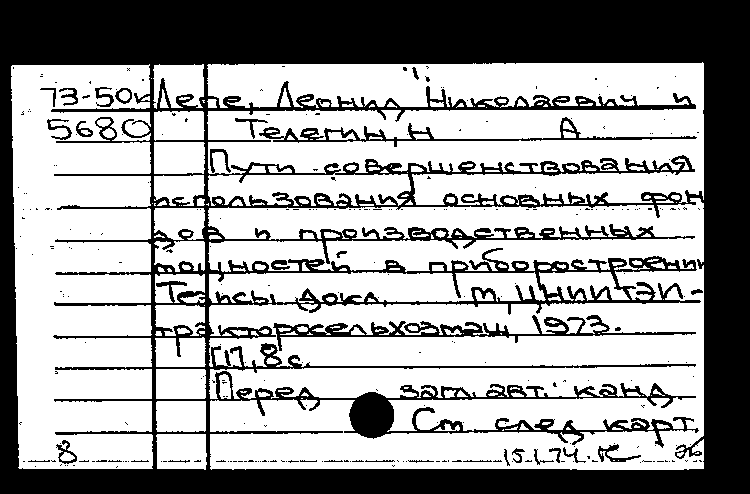 73-50к Лепе, Леонид Николаевич и
5680 Телегин, Н А
Пути совершенствования
использования основных фон
дов и производственных
мощностей в приборостроении
Тезисы докл. М, ЦНИИТЭИ-
трактросельхозмаш, 1973.
[1], 8 с.
Перед загл. авт.: канд.
См след карт.
8 15.1.74.